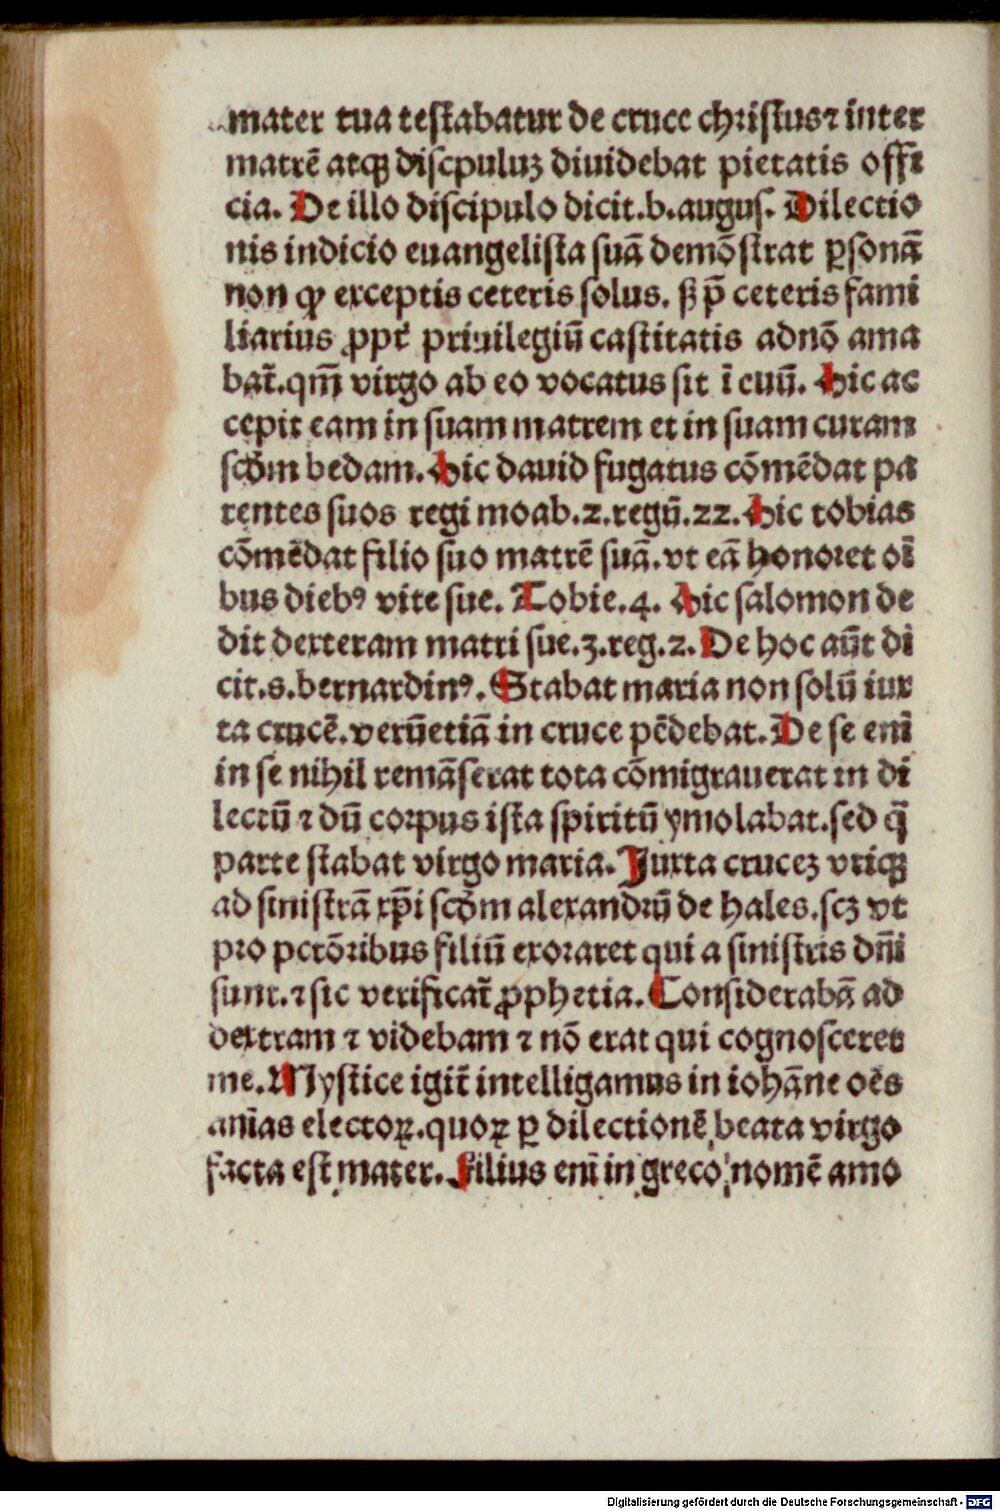 mater tua testabatur de cruce christus ⁊ inter
matrē atqꝫ discpuluꝫ diuidebat pietatis offi
cia. De illo discipulo dicit .b. augus. Dilectio
nis indicio euangelista suā demōstrat ꝑsonā
non ꝙ exceptis ceteris solus. ẞ p̄ ceteris fami
liarius ꝓpt̄ priuilegiū castitatis adnō ama
bat̄. qm̄ virgo ab eo vocatus sit ī euū. Hic ac
cepit eam in suam matrem et in suam curam
scḋm bedam. Hic dauid fugatus cōmēdat pa
rentes suos regi moab .2. regū. 22. Hic tobias
cōmēdat filio suo matrē suā. vt eā honoret oī
bus diebꝰ vite sue. Tobie .4. Hic salomon de
dit dexteram matri sue .3. reg. 2. De hoc aūt di
cit .s. bernardinꝰ. Stabat maria non solū iux
ta crucē. verūetiā in cruce pēdebat. De se enī
in se nihil remāserat tota cōmigrauerat in di
lectū ⁊ dū corpus ista spiritū ymolabat. sed q̄
parte stabat virgo maria. Iuxta cruceꝫ vtiqꝫ
ad sinistrā xp̄i scḋm alexandrū de hales. scꝫ vt
pro pctōribus filiū exoraret qui a sinistris dn̄i
sunt. ⁊ sic verificat̄ ꝓphetia. Considerabā ad
dextram ⁊ videbam ⁊ nō erat qui cognosceret
me. Mystice igit̄ intelligamus in iohāne oēs
anīas electoꝝ. quoꝝ ꝑ dilectionē beata virgo
facta est mater. Filius enī in greco nomē amo
Digitalisierung gefördert durch die Deutsche Forschungsgemeinschaft - DFG